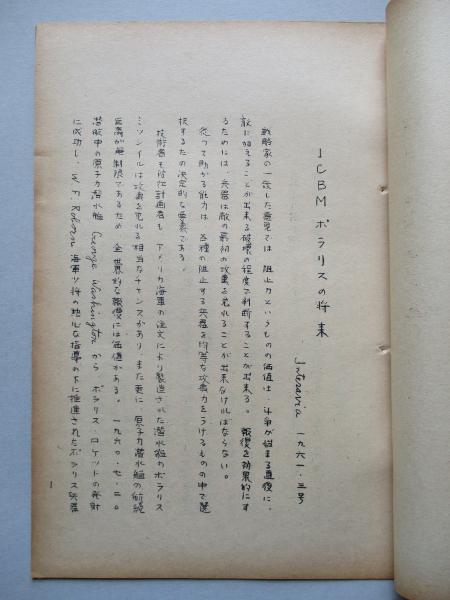 ICBMポラリスの将来
Interavia 一九六一・三号
戦略家の一致した意見では、阻止力というものの価値は、斗争が始まる直後に、
敵に加えることが出来る破壊の程度で判断することが出来る。報復を効果的にす
るためには、兵器は敵の最初の攻撃を免れることが出来なければならない。
従って助かる能力は、各種の阻止する兵器を均等な攻撃力をうけるものの中で選
択するための決定的な要素である。
技術者も防禦計画者も、アメリカ海軍の注文により製造された潜水艦のポラリス
ミッシイルは攻撃を免れる相当なチャンスがあり、また更に、原子力潜水艦の航続
距離が無制限であるため、全世界的な報復には価値がある。一九六〇・七・二〇。
潜航中の原子力潜水艦 George Washington から ポラリス・ロケットの発射
に成功し、W. F. Raborn 海軍少将の熱心な指導の下に推進されたポラリス兵器
1